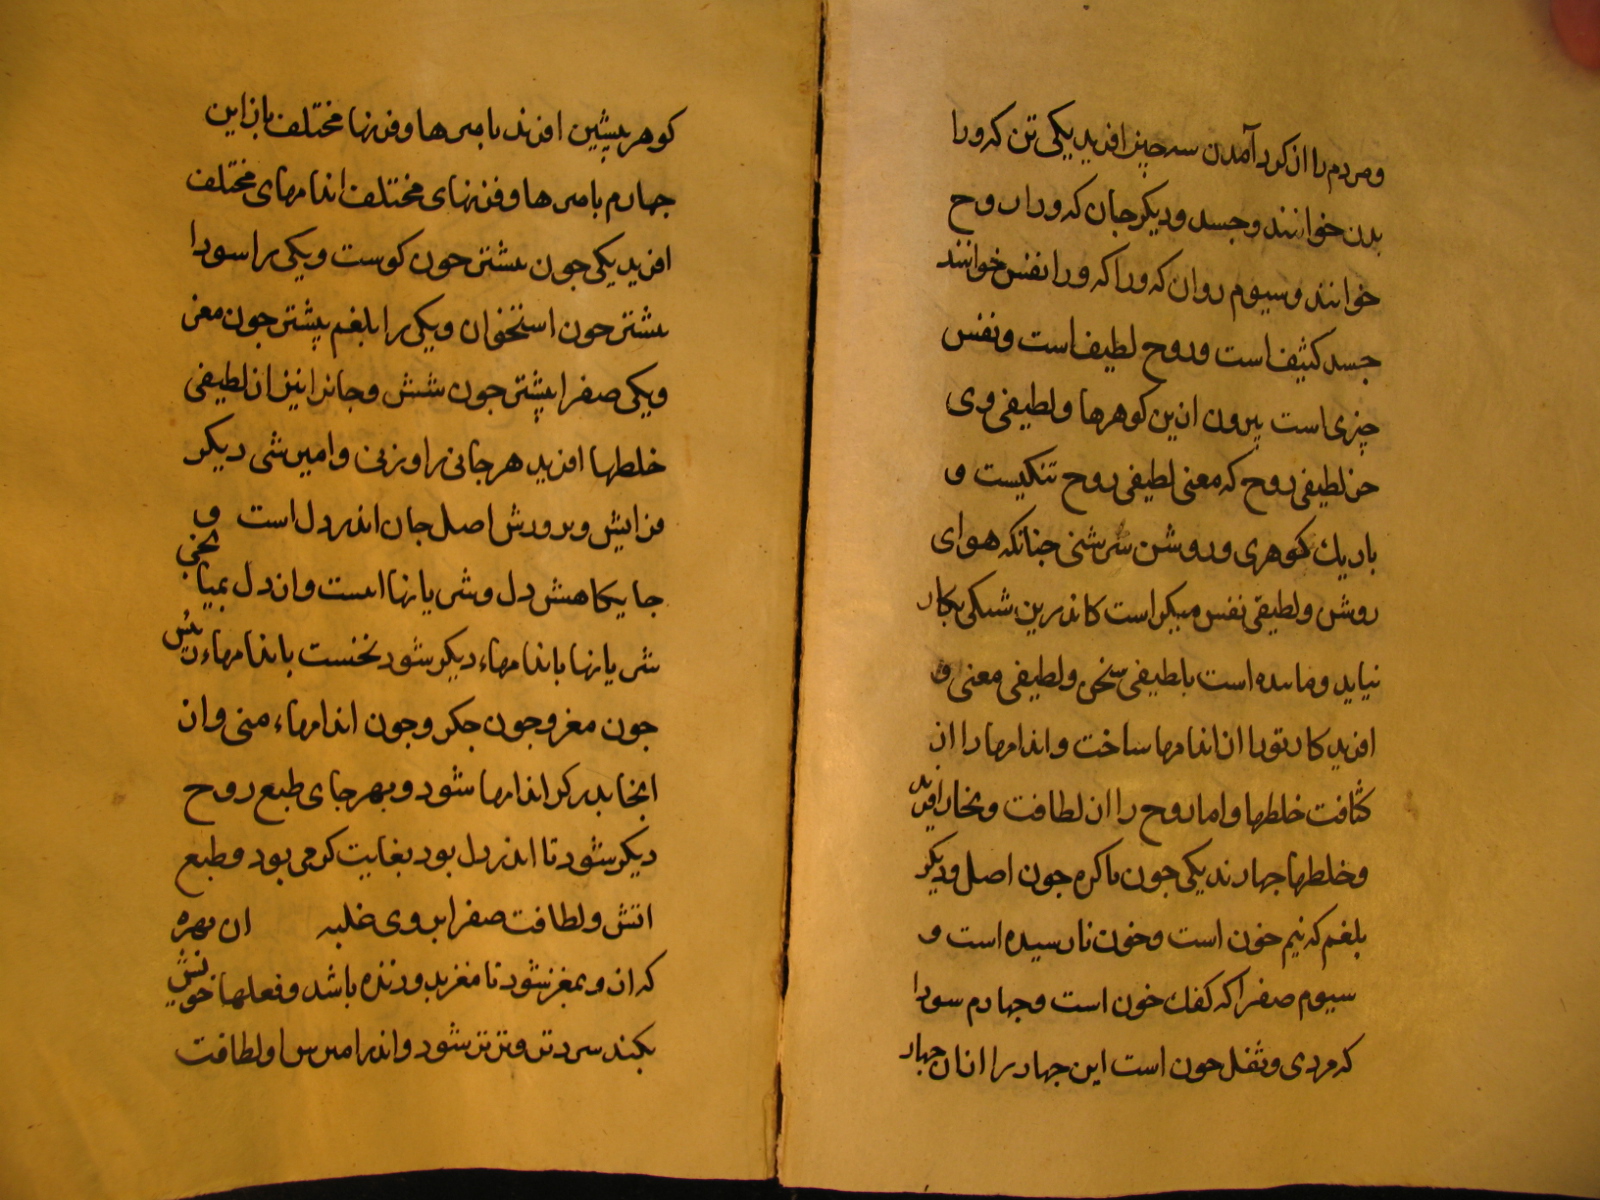 ومردم را از کرد آمدن سه چیز افرید یکی تن که ورا
بدن خوانند وجسد ودیکر جان که ورا روح
خوانند وسیوم روان که ورا که ورا نفس خوانند
جسد کثیف است وروح لطیف است ونفس
چیزی است بیرون ازین کوهرها ولطیفی وی
جز لطیفی روح که معنی لطیفی روح تنکیست و
باریك کوهری وروشن سرشتی جنانکه هوای
روشن ولطیفی نفس میکر است کاندرین سبکی بکار
نیاید وماننده است بالطیفی سخن ولطیفی معنی و
افرید کار تورا از اندامها ساخت واندامها را از
کثافت خلطها واما روح را از لطافت وبخار افرید
وخلطها جهارند یکی جون پاکره جون اصل ودیکر
بلغم که نیم خون است وخون نارسیده است و
سیوم صفرا که کفك خون است وجهارم سودا
که دردی وثفل خون است این جهار را ازان جهار
کوهر پیشین افرید بامیزها ووزنها مختلف باز این
جهارم بامیزها ووزنهای مختلف اندامهای مختلف
افرید یکی جون بیشتر جون کوست ویکی را سودا
بیشتر جون استخوان ویکی را بلغم بیشتر جون مغز
ویکی صفرا بیشتر جون شش وجانرا نیز از لطیفی
خلطها افرید هر جانی را وزنی وامیزشی دیکر
فزایش وپرورش اصل جان اندر دل است و
جایکاهش دل وشریانها است واز دل بمیانجی
شریانها باندامهاء دیکر شود نخست باندامهاء رئیس
جون مغز وجون جکر وجون اندامهاء منی واز
انجا بدیکر اندامها شود وبهر جای طبع روح
دیکر شود تا اندر دل بود بغایت کرمی بود وطبع
اتش ولطافت صفرا بر وی غلبه ان بهره
که از و بمغز شود تا مغز بدو زنده باشد وفعلها خویش
بکند سردتر وترتر شود واندر امیزش او لطافت